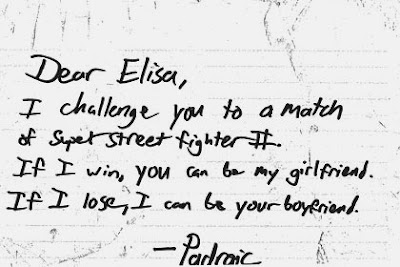 Dear Elisa,
I challenge you to a match
of Super Street fighter II.
If I win, you can be my girlfriend.
If I lose, I can be your boyfriend.
— Padraic